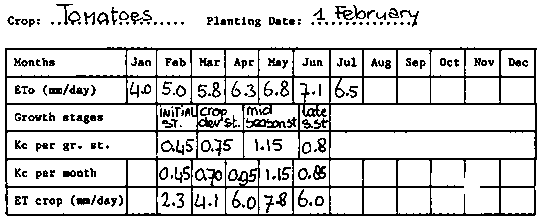 Crop: Tomatoes Planting Date: 1 February
Months Jan Feb Mar Apr May Jun Jul Aug Sep Oct Nov Dec
ETo (mm/day) 4.0 5.0 5.8 6.3 6.8 7.1 6.5
Growth stages INITIAL ST. crop dev st. mid season st late s.st
Kc per gr. st. 0.45 0.75 1.15 0.8
Kc per month 0.45 0.70 0.95 1.15 0.85
ET crop (mm/day) 2.3 4.1 6.0 7.8 6.0